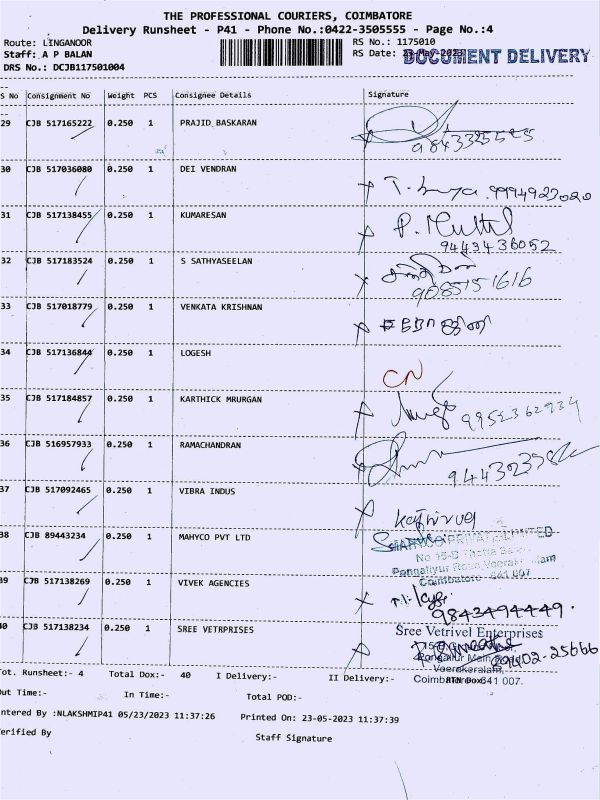 THE PROFESSIONAL COURIERS, COIMBATORE
Delivery Runsheet - P41 - Phone No.:0422-3505555 - Page No.:4
Route: LINGANOOR RS No.: 1175010
Staff: A P BALAN RS Date: 23-May-2023 DOCUMENT DELIVERY
DRS No.: DCJB117501004
S No Consignment No Weight PCS Consignee Details Signature
29 CJB 517165222 0.250 1 PRAJID BASKARAN
30 CJB 517036080 0.250 1 DEI VENDRAN 9994927020
31 CJB 517138455 0.250 1 KUMARESAN
9443436052
32 CJB 517183524 0.250 1 S SATHYASEELAN
9085151616
33 CJB 517018779 0.250 1 VENKATA KRISHNAN
34 CJB 517136844 0.250 1 LOGESH CN
35 CJB 517184857 0.250 1 KARTHICK MRURGAN 9952362934
36 CJB 516957933 0.250 1 RAMACHANDRAN
37 CJB 517092465 0.250 1 VIBRA INDUS
38 CJB 89443234 0.250 1 MAHYCO PVT LTD MAHYCO PRIVATE LIMITED
Coimbatore - 641 007
39 CJB 517138269 0.250 1 VIVEK AGENCIES
9843494449.
40 CJB 517138234 0.250 1 SREE VETRPRISES Sree Vetrivel Enterprises
Veerakeralam,
Tot. Runsheet:- 4 Total Dox:- 40 I Delivery:- II Delivery:- Coimbatore-641 007.
Out Time:- In Time:- Total POD:-
Entered By :NLAKSHMIP41 05/23/2023 11:37:26 Printed On: 23-05-2023 11:37:39
Verified By Staff Signature